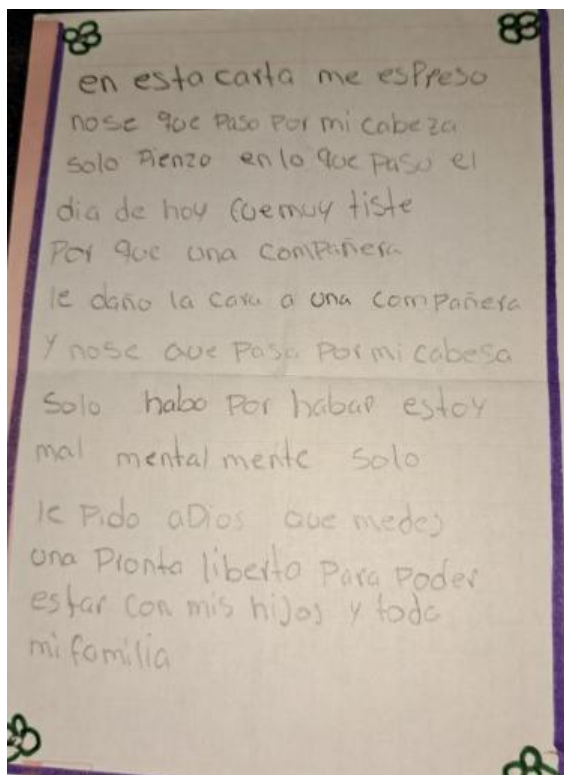 en esta carta me esPreso
nose que Paso Por mi cabeza
solo Pienzo en lo que paso el
dia de hoy fue muy tiste
Por que una compañera
le daño la cara a una compañera
y nose que Pasa Por mi cabesa
Solo habo por habar estoy
mal mentalmente solo
le Pido aDios que medes
una Pronta liberta Para Poder
estar con mis hijos y toda
mi familia